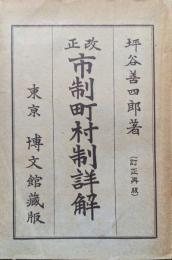 坪谷善四郎著
(訂正再版)
改正
市制町村制詳解
東京 博文館蔵版